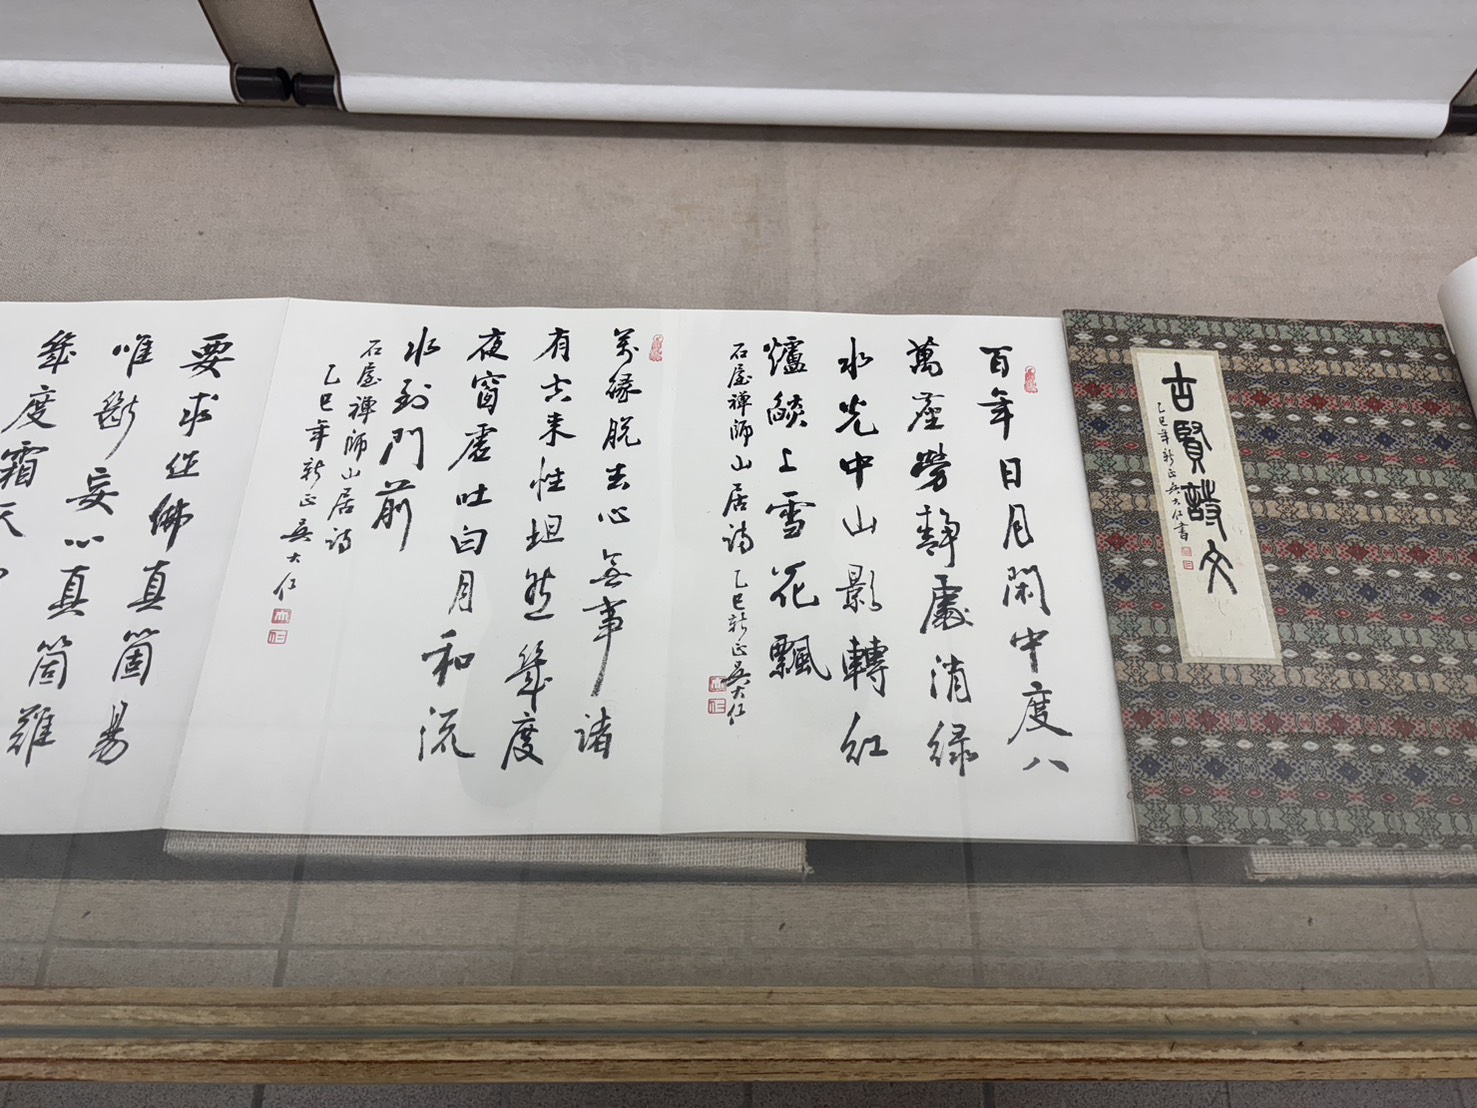 古賢詩文
乙巳年新正吳大仁書
百年日月閑中度八
萬塵勞靜處消綠
水光中山影轉紅
爐燄上雪花飄
石屋禪師山居詩 乙巳新正吳大仁
大仁
萬緣脫去心無事諸
有空來性坦然幾度
夜窗虛吐白月和流
水到門前
石屋禪師山居詩
乙巳年新正吳大仁
大仁
要求作佛真箇易
唯斷妄心真箇難
幾度霜天